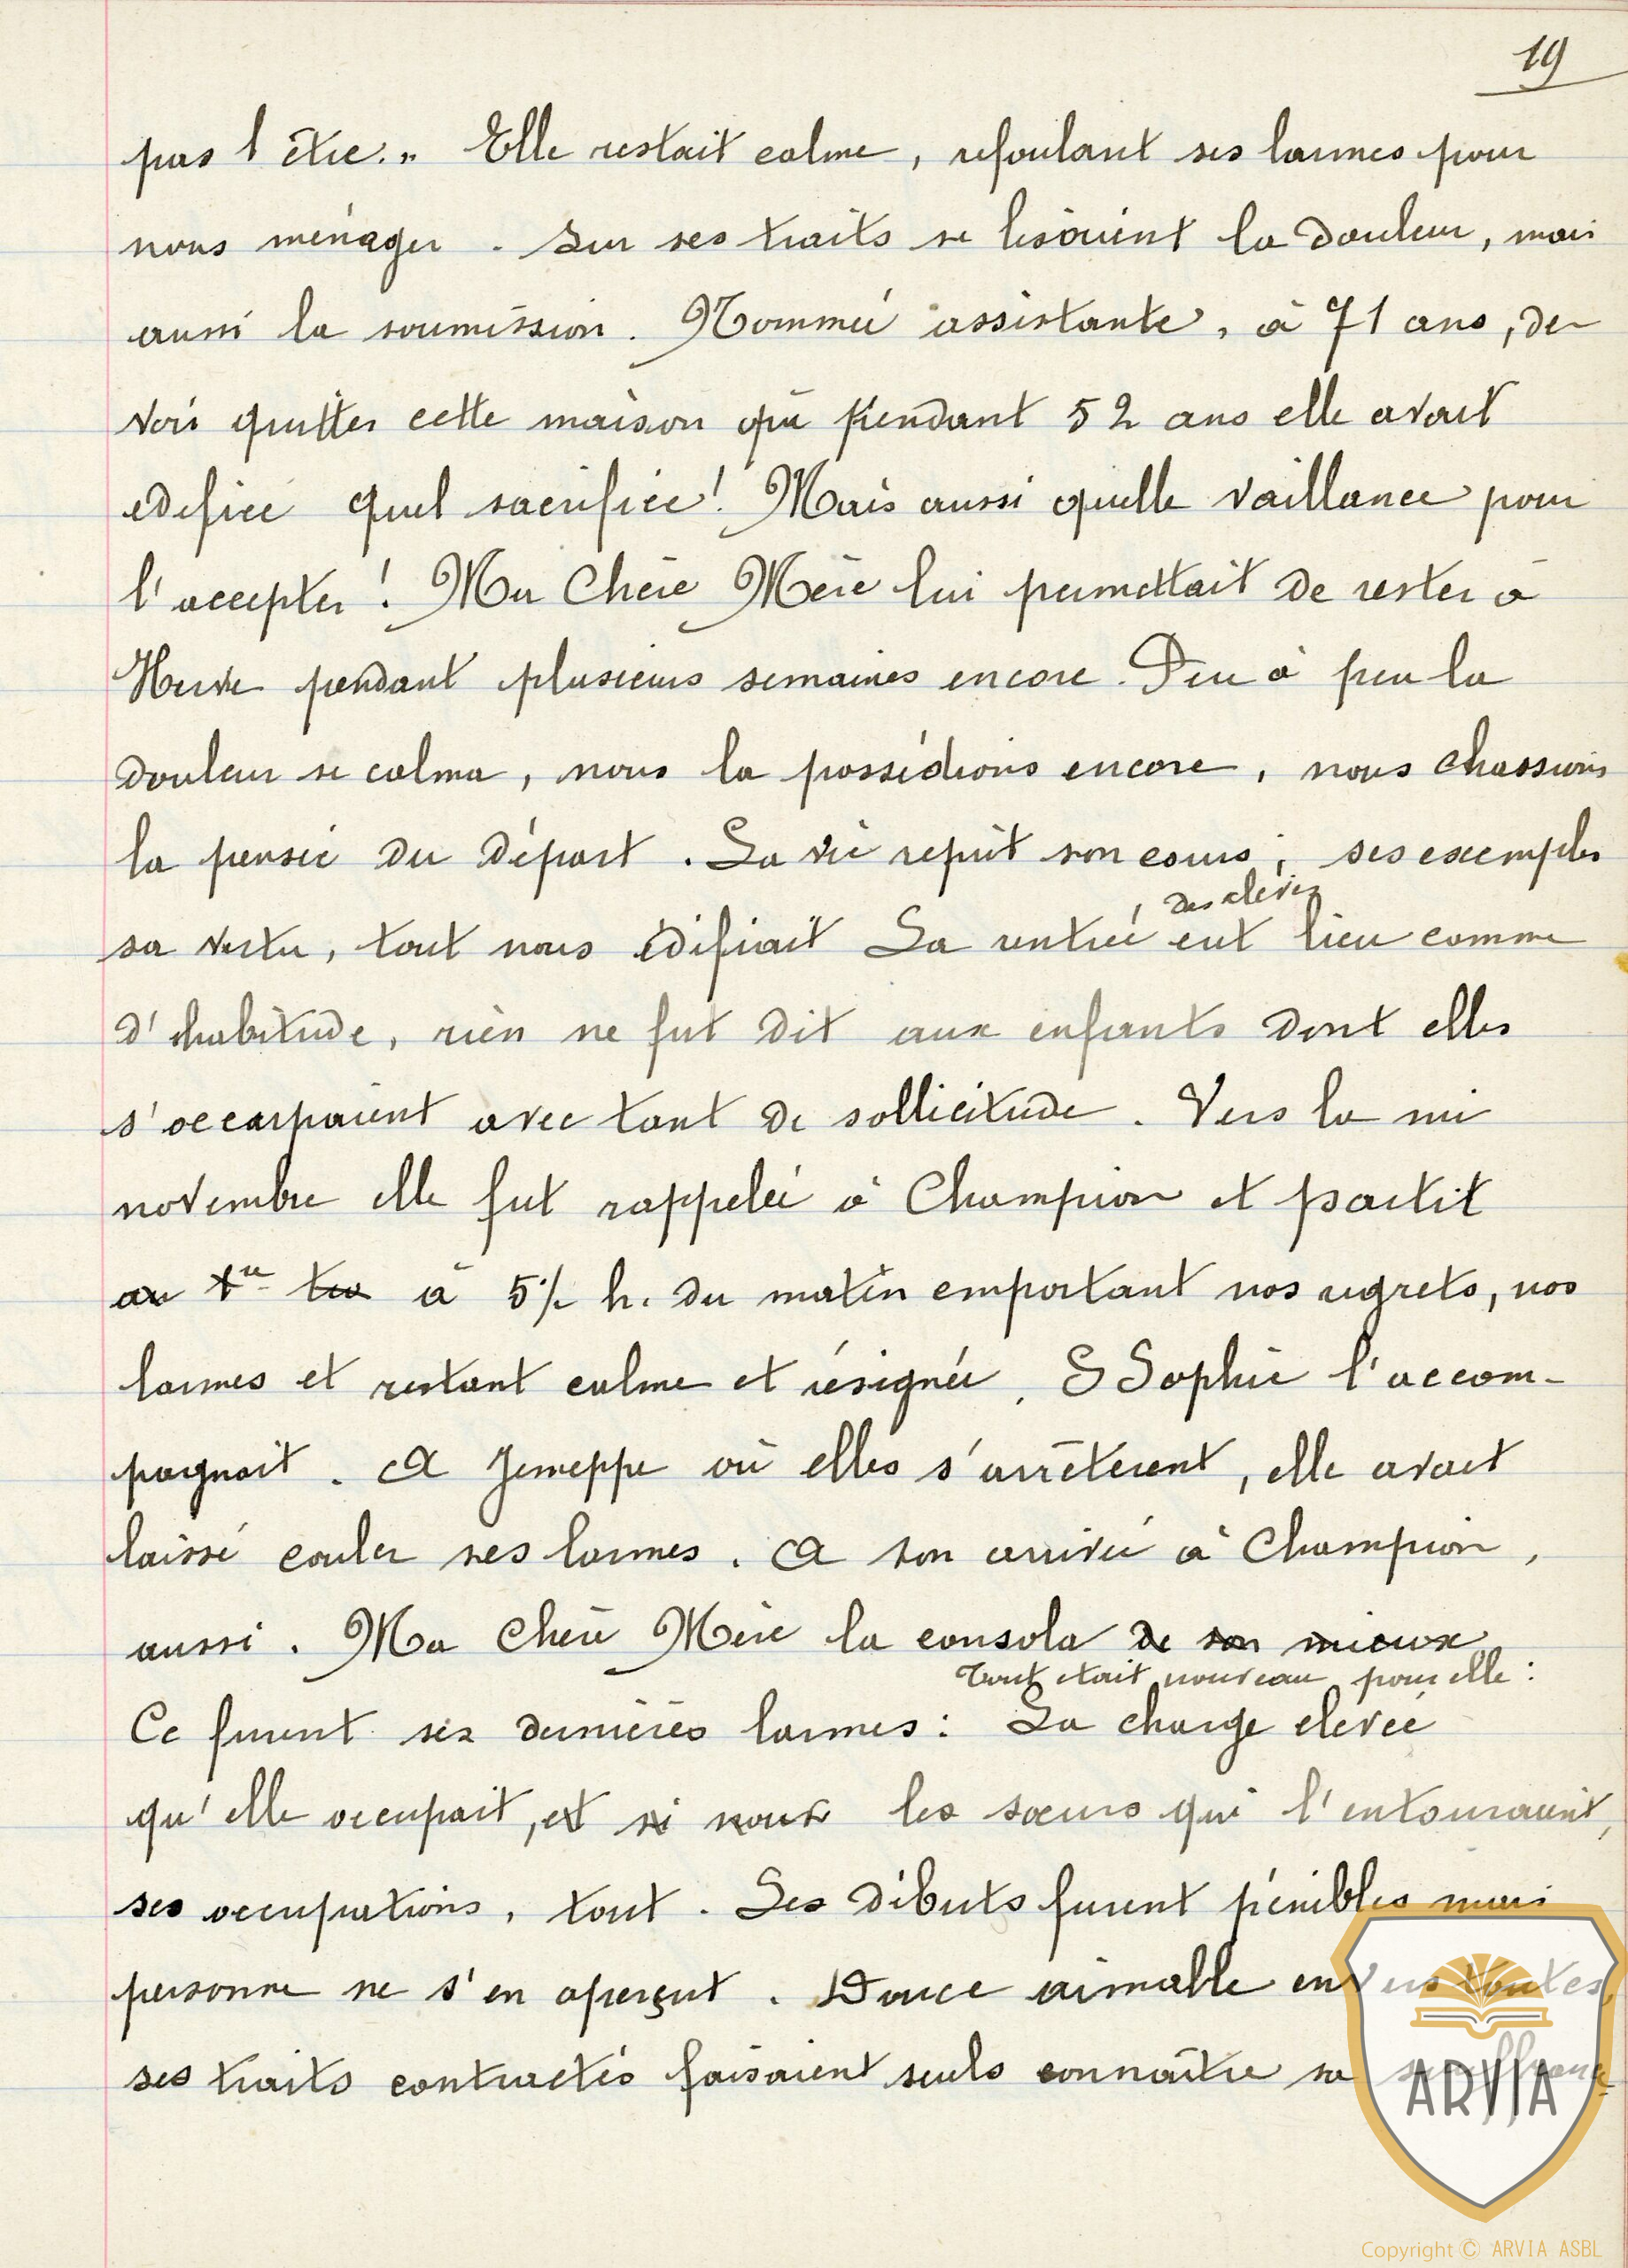 19
pas l'être." Elle restait calme, refoulant ses larmes pour
nous ménager. Sur ses traits se lisaient la douleur, mais
aussi la soumission. Nommée assistante, à 71 ans, de-
voir quitter cette maison que pendant 52 ans elle avait
édifiée quel sacrifice! Mais aussi quelle vaillance pour
l'accepter! Ma Chère Mère lui permettait de rester à
Herve pendant plusieurs semaines encore. Peu à peu la
douleur se calma, nous la possédions encore, nous chassions
la pensée du départ. La vie reprit son cours; ses exemples
des élèves
sa vertu, tout nous édifiait La rentrée eut lieu comme
d'habitude, rien ne fut dit aux enfants dont elles
s'occupaient avec tant de sollicitude. Vers la mi
novembre elle fut rappelée à Champion et partit
au 1er tra à 5½ h. du matin emportant nos regrets, nos
larmes et restant calme et résignée. S Sophie l'accom-
pagnait. A Jemeppe où elles s'arrêtèrent, elle avait
laissé couler ses larmes. A son arrivée à Champion,
aussi. Ma Chère Mère la consola de son mieux
Tout était nouveau pour elle:
Ce furent ses dernières larmes: La charge élevée
qu'elle occupait, et si nous les sœurs qui l'entouraient,
ses occupations, tout. Ses débuts furent pénibles mais
personne ne s'en aperçut. Douce aimable envers toutes,
ses traits contractés faisaient seuls connaître sa souffrance
ARVIA
Copyright © ARVIA ASBL